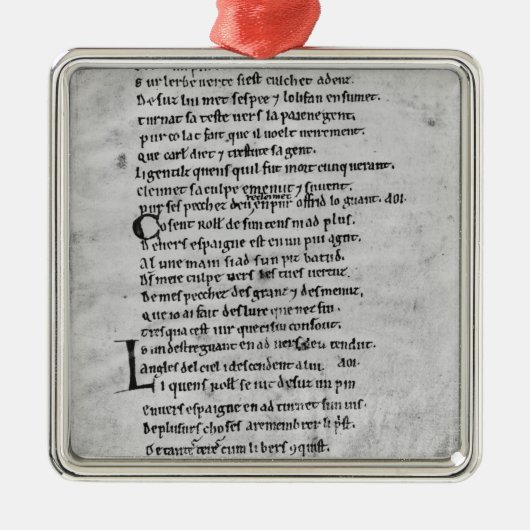 Sur lerbe uerte siest culchet adenz.
Desuz lui met sespee 7 lolifan ensumet.
turnat sa teste uers la paiene gent.
pur co lat fait que il uoelt ueirement.
Que carl diet 7 trestute sa gent.
Li gentilz quens quil fut mort cunquerant.
cleimet sa culpe emenut 7 suuent.
recleimet
pur ses pecchez deu en pur offrid lo guant. aoi.
Co sent Roll de sun tens ni ad plus.
Deuers espaigne est en un pui agut.
Al une main si ad sun piz batud.
Ds meie culpe uers les tues uertuz
De mes pecchez des granz 7 des menuz,
Que io ai fait des lure que nez fui.
tresqua cest iur que ci sui consout.
Sun destre guant en ad uers deu tendut.
Langles del ciel i descendent a lui. aoi.
Li quens Roll se iut desuz un pin
enuers espaigne en ad turnet sun uis.
De plusurs choses a remembrer li pst.
De tantes teres cum li bers 9quist.